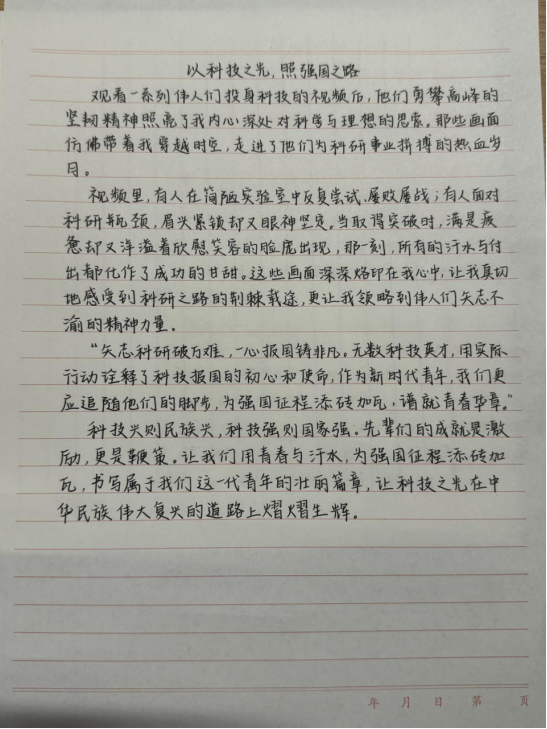 以科技之光，照强国之路
观看一系列伟人们投身科技的视频后，他们勇攀高峰的
坚韧精神照亮了我内心深处对科学与理想的思索。那些画面
仿佛带着我穿越时空，走进了他们为科研事业拼搏的热血岁
月。
视频里，有人在简陋实验室中反复尝试、屡败屡战；有人面对
科研瓶颈，眉头紧锁却又眼神坚定。当取得突破时，满是疲
惫却又洋溢着欣慰笑容的脸庞出现，那一刻，所有的汗水与付
出都化作了成功的甘甜。这些画面深深烙印在我心中，让我真切
地感受到科研之路的荆棘载途，更让我领略到伟人们矢志不
渝的精神力量。
“矢志科研破万难，一心报国铸非凡。无数科技英才，用实际
行动诠释了科技报国的初心和使命，作为新时代青年，我们更
应追随他们的脚步，为强国征程添砖加瓦，谱就青春华章。”
科技兴则民族兴，科技强则国家强。先辈们的成就是激
励，更是鞭策。让我们用青春与汗水，为强国征程添砖加
瓦，书写属于我们这一代青年的壮丽篇章，让科技之光在中
华民族伟大复兴的道路上熠熠生辉。
年 月 日 第 页